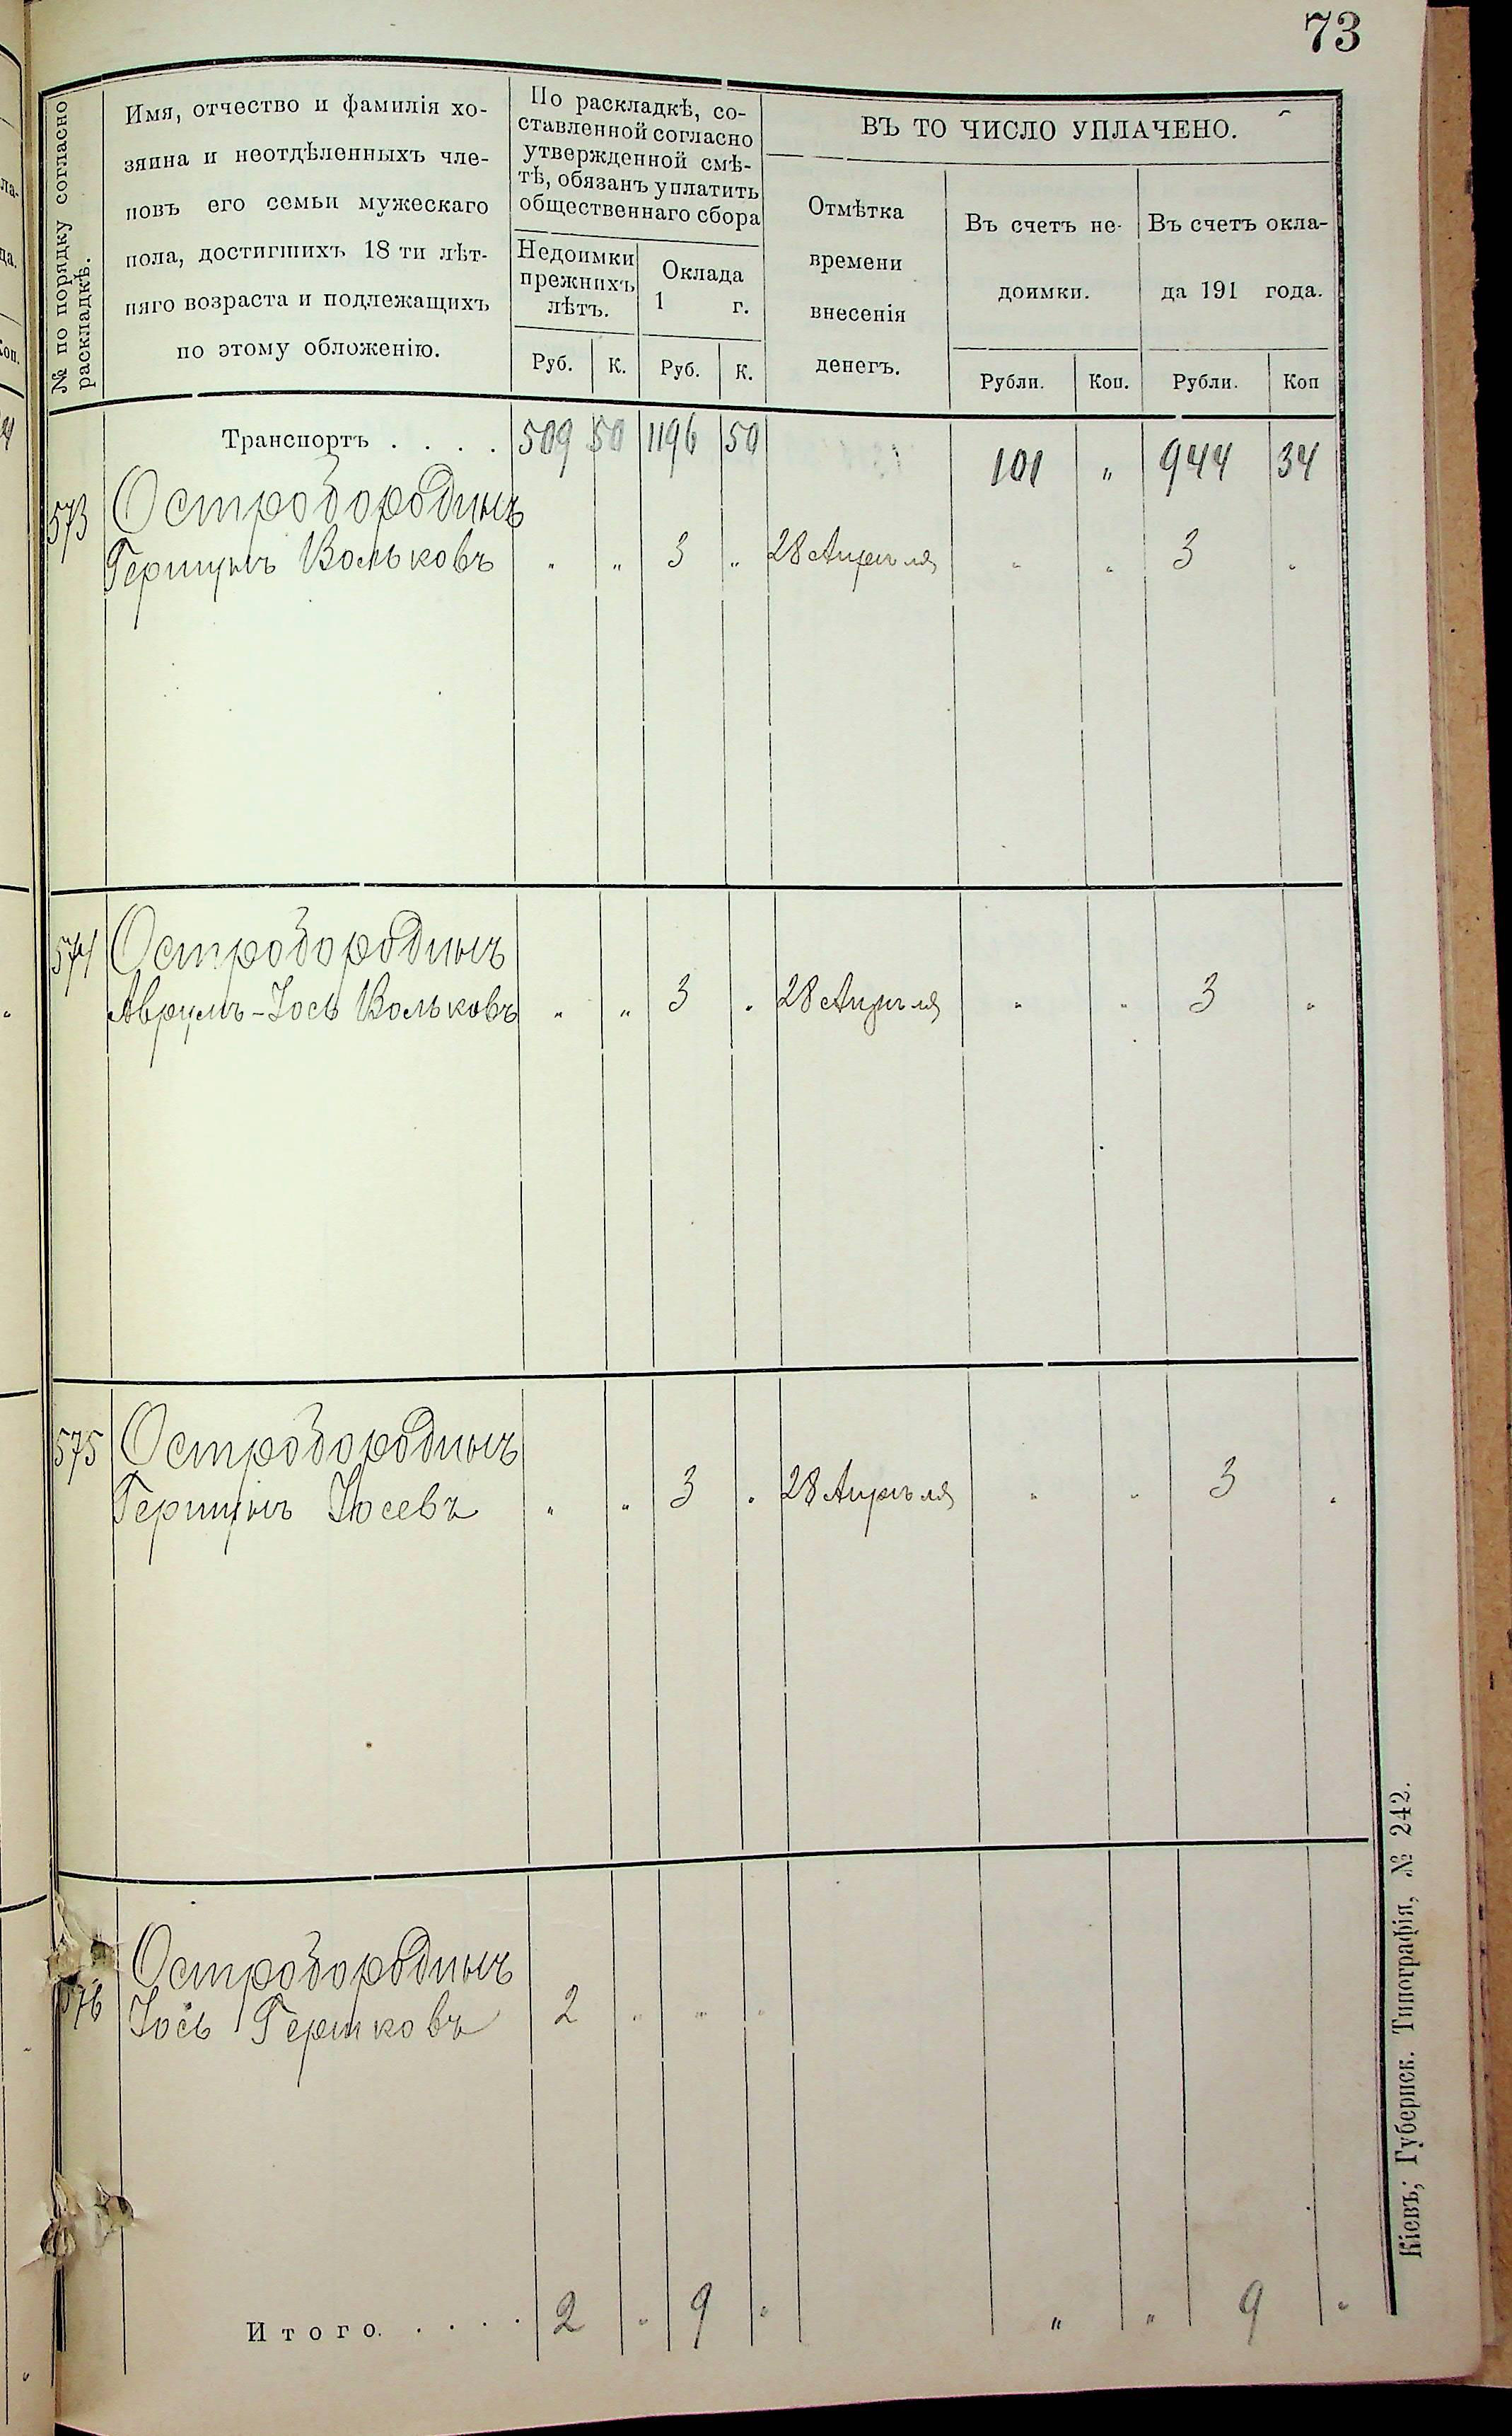 73
№ по порядку согласно
раскладкѣ.
Имя, отчество и фамилія хо-
зяина и неотдѣленныхъ чле-
новъ его семьи мужескаго
пола, достигшихъ 18 ти лѣт-
няго возраста и подлежащихъ
по этому обложенію.
По раскладкѣ, со-
ставленной согласно
утвержденной смѣ-
тѣ, обязанъ уплатить
общественнаго сбора
Недоимки
прежнихъ
лѣтъ.
Оклада
1 г.
Руб. К. Руб. К.
ВЪ ТО ЧИСЛО УПЛАЧЕНО.
Отмѣтка
времени
внесенія
денегъ.
Въ счетъ не-
доимки.
Въ счетъ окла-
да 191 года.
Рубли. Коп. Рубли. Коп
Транспортъ . . . . 509 50 1196 50 101 " 944 34
573 Остробородыхъ
Гершунъ Вольковъ " " 3 " 28 Апрѣля " " 3 "
574 Остробородыхъ
Аврумъ-Іось Вольковъ " " 3 " 28 Апрѣля " " 3 "
575 Остробородыхъ
Гершунъ Іосевъ " " 3 " 28 Апрѣля " " 3 "
576 Остробородыхъ
Іось Гершковъ 2 " " "
Итого. . . . . 2 " 9 " " " 9 "
Кіевъ, Губернск. Типографія, № 242.